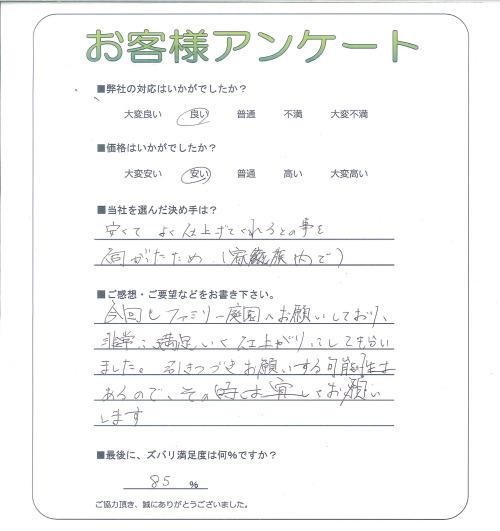 お客様アンケート
■弊社の対応はいかがでしたか?
大変良い 良い 普通 不満 大変不満
■価格はいかがでしたか?
大変安い 安い 普通 高い 大変高い
■当社を選んだ決め手は?
安くて よく仕上げてくれるとの事を
伺がたため(家族内で)
■ご感想・ご要望などをお書き下さい。
今回もファミリー庭園へお願いしており、
非常に満足いく仕上がりにしてもらい
ました。引きつづきお願いする可能性は
あるので、その時は宜しくお願い
します
■最後に、ズバリ満足度は何%ですか?
85 %
ご協力頂き、誠にありがとうございました。